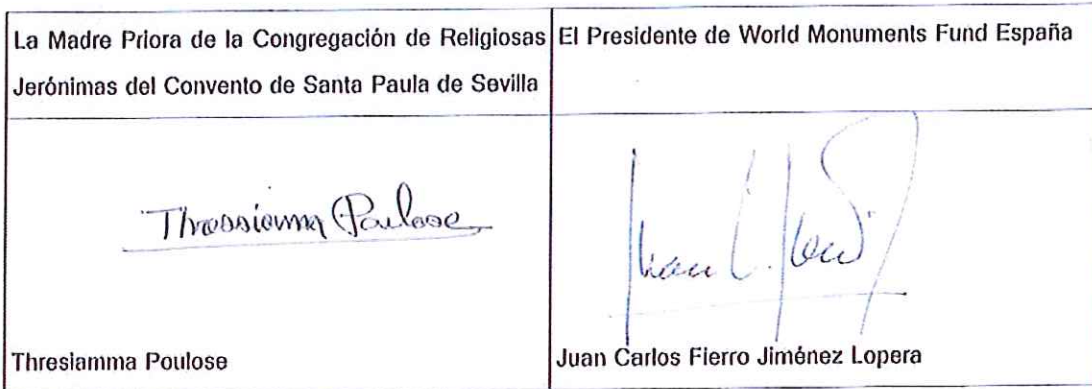 La Madre Priora de la Congregación de Religiosas
Jerónimas del Convento de Santa Paula de Sevilla
El Presidente de World Monuments Fund España
Thressiamma Poulose
Thresiamma Poulose
Juan Carlos Fierro Jiménez Lopera